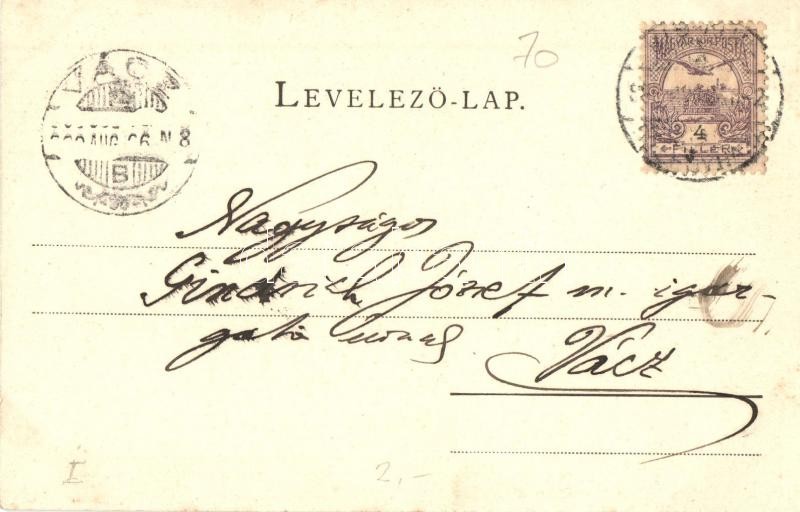 70
LEVELEZŐ-LAP.
VÁCZ
AUG. 26. N 8
B
MAGYAR KIR. POSTA
4
FILLÉR
Nagyságos
József m. igaz-
gató úrnak
Vácz
I
2,-